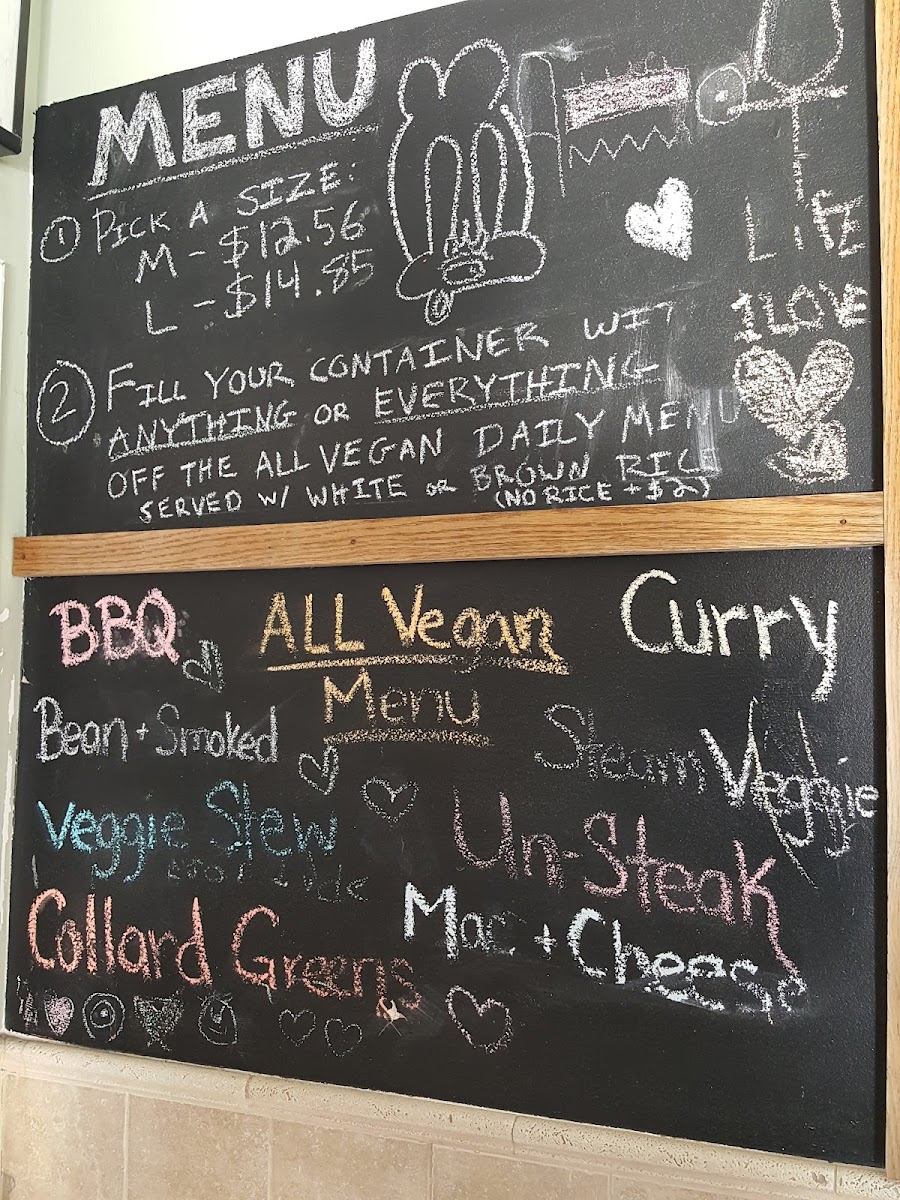 MENU
1 PICK A SIZE:
M - $12.56
L - $14.85
LIFE
I LOVE
2 FILL YOUR CONTAINER WIT
ANYTHING OR EVERYTHING
OFF THE ALL VEGAN DAILY MENU
SERVED W/ WHITE OR BROWN RICE
(NO RICE + $2)
BBQ
ALL Vegan
Menu
Curry
Bean + Smoked
Steam Veggie
Veggie Stew
Un-Steak
Collard Greens
Mac + Cheese